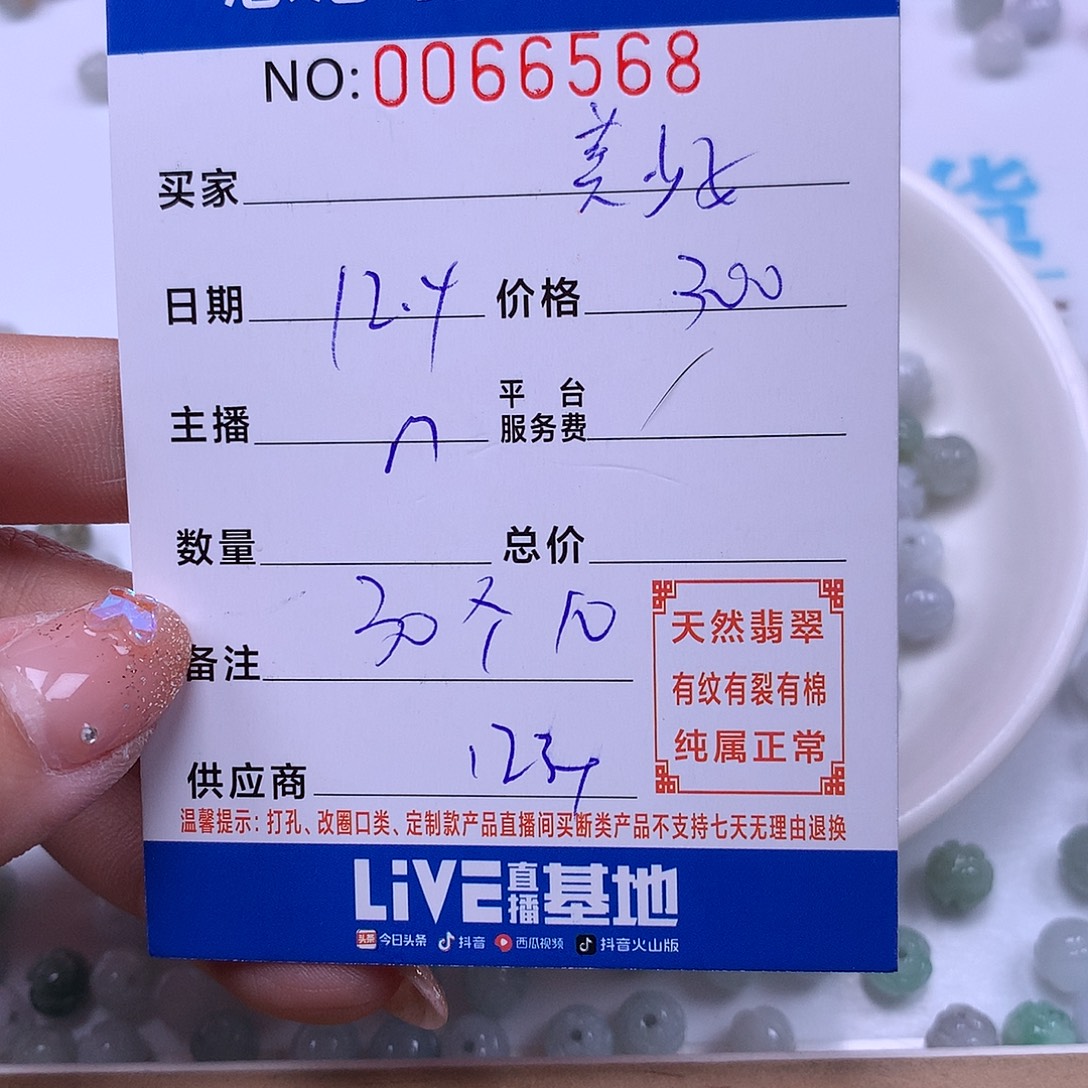 NO:0066568
买家 美少女
日期 12.4 价格 300
主播 n 平台服务费 /
数量 总价
备注 30个 10
供应商 1234
天然翡翠
有纹有裂有棉
纯属正常
温馨提示：打孔、改圈口类、定制款产品直播间买断类产品不支持七天无理由退换
LiVE直播基地
头条 今日头条 抖音 西瓜视频 抖音火山版
货